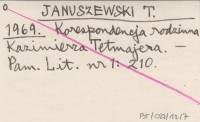 JANUSZEWSKI T.
1969. Korespondencja rodzinna
Kazimierza Tetmajera. —
Pam. Lit. nr 1: 210.